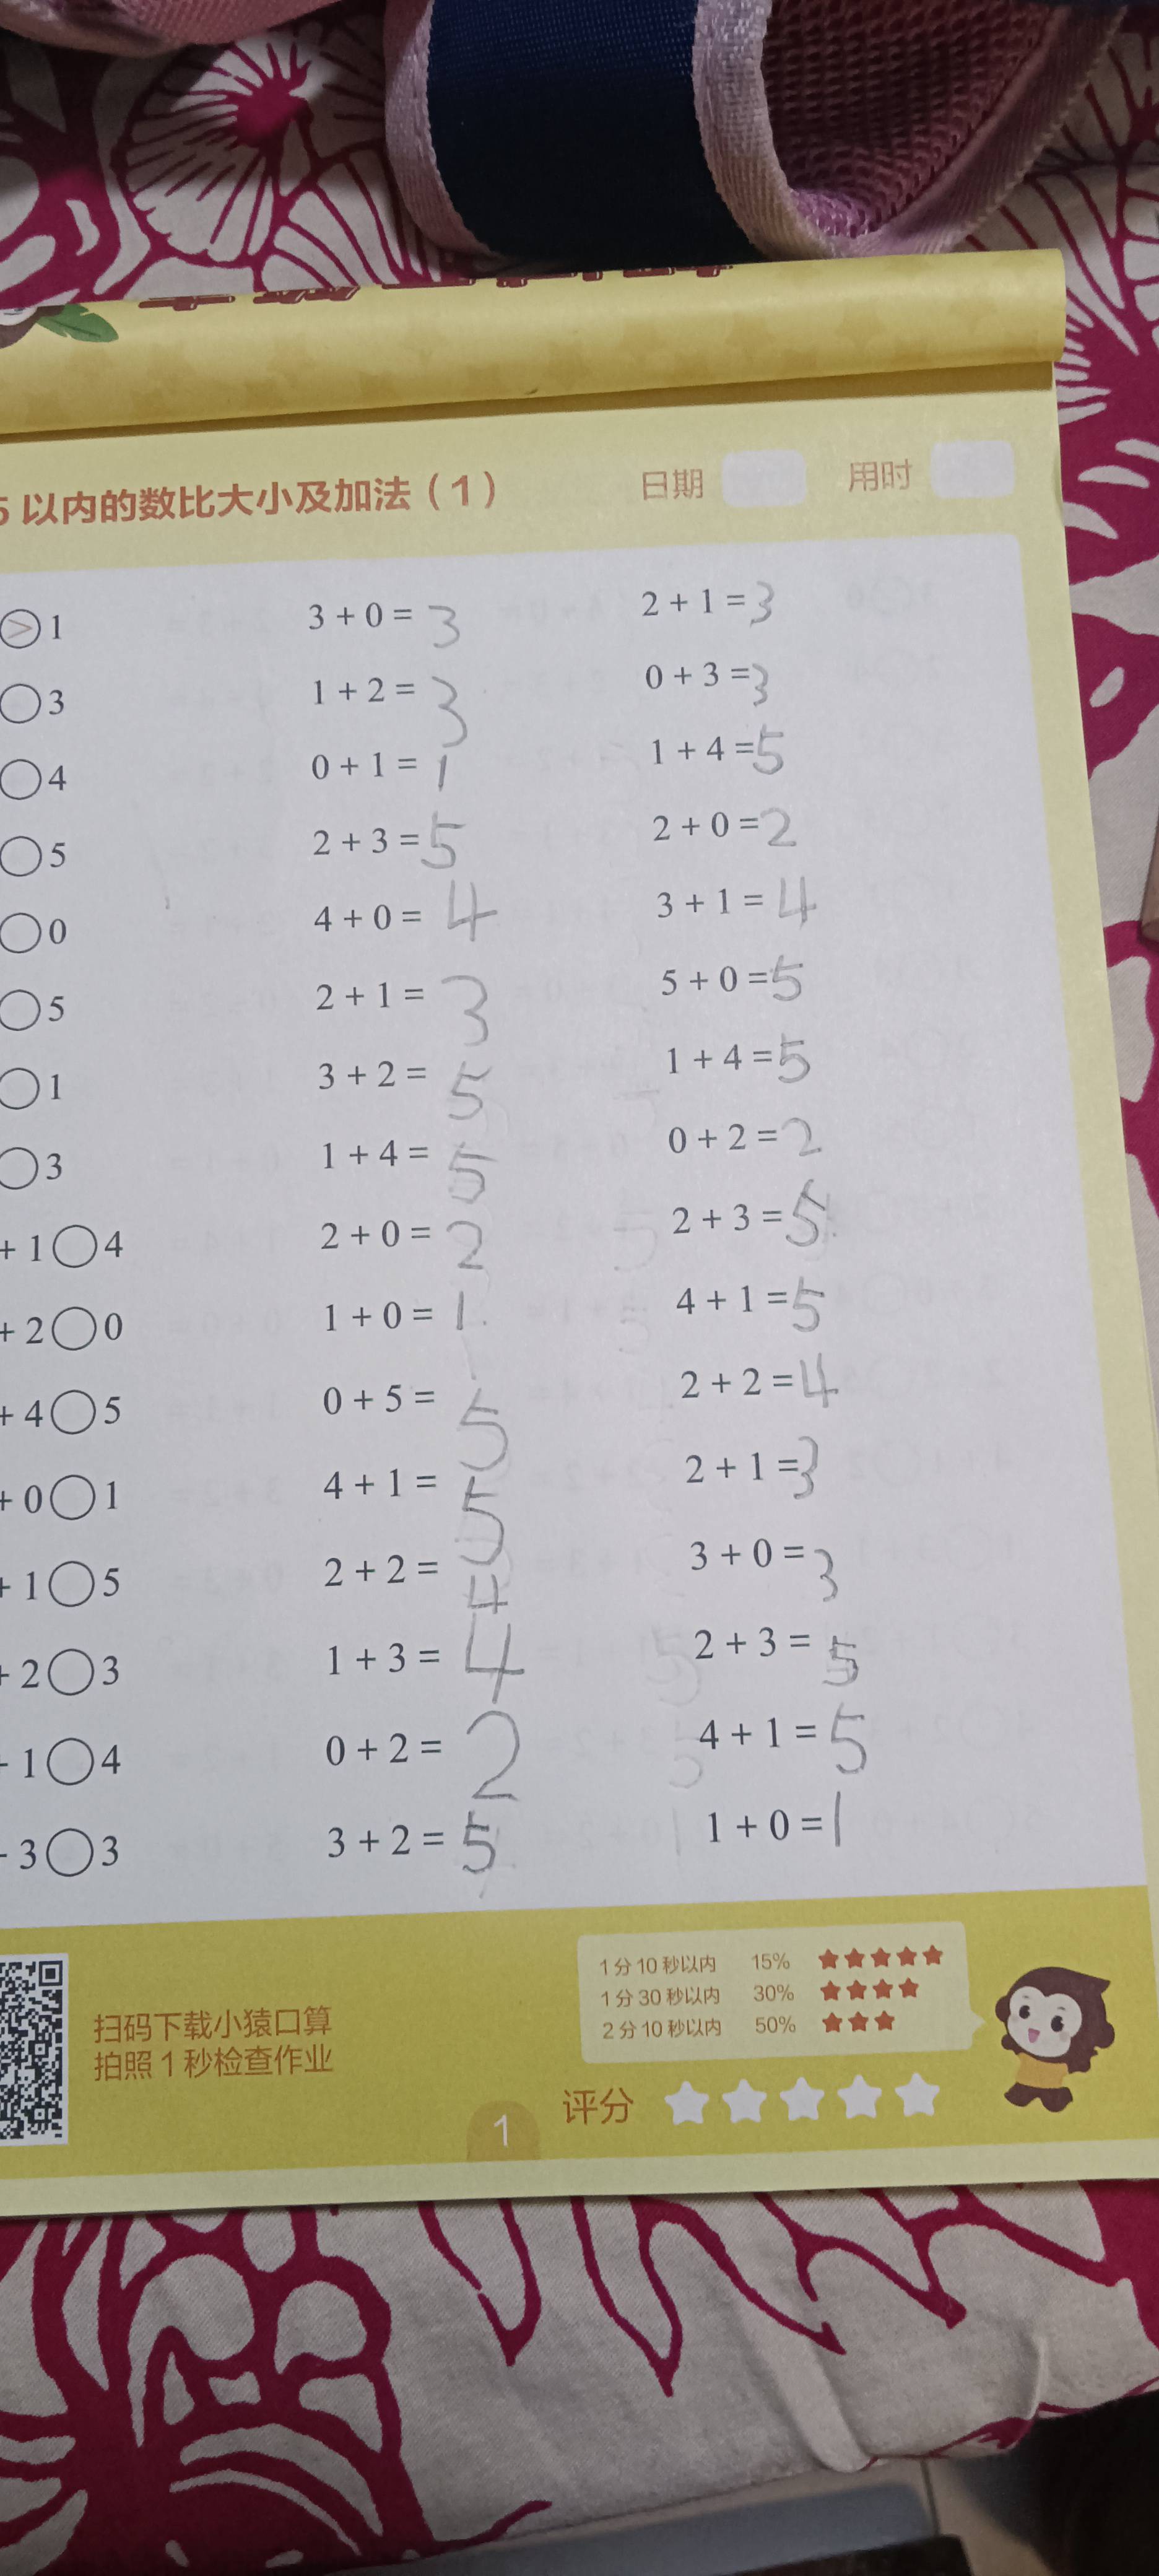 5 以内的数比大小及加法（1） 日期 用时
> 1 3 + 0 = 3 2 + 1 = 3
○ 3 1 + 2 = 3 0 + 3 = 3
○ 4 0 + 1 = 1 1 + 4 = 5
○ 5 2 + 3 = 5 2 + 0 = 2
○ 0 4 + 0 = 4 3 + 1 = 4
○ 5 2 + 1 = 3 5 + 0 = 5
○ 1 3 + 2 = 5 1 + 4 = 5
○ 3 1 + 4 = 5 0 + 2 = 2
+ 1 ○ 4 2 + 0 = 2 2 + 3 = 5
+ 2 ○ 0 1 + 0 = 1 4 + 1 = 5
+ 4 ○ 5 0 + 5 = 5 2 + 2 = 4
+ 0 ○ 1 4 + 1 = 5 2 + 1 = 3
+ 1 ○ 5 2 + 2 = 4 3 + 0 = 3
+ 2 ○ 3 1 + 3 = 4 2 + 3 = 5
+ 1 ○ 4 0 + 2 = 2 4 + 1 = 5
+ 3 ○ 3 3 + 2 = 5 1 + 0 = 1
扫码下载小猿口算
拍照 1 秒检查作业
1 分 10 秒以内 15% ★★★★★
1 分 30 秒以内 30% ★★★★
2 分 10 秒以内 50% ★★★
评分 ★★★★★
1